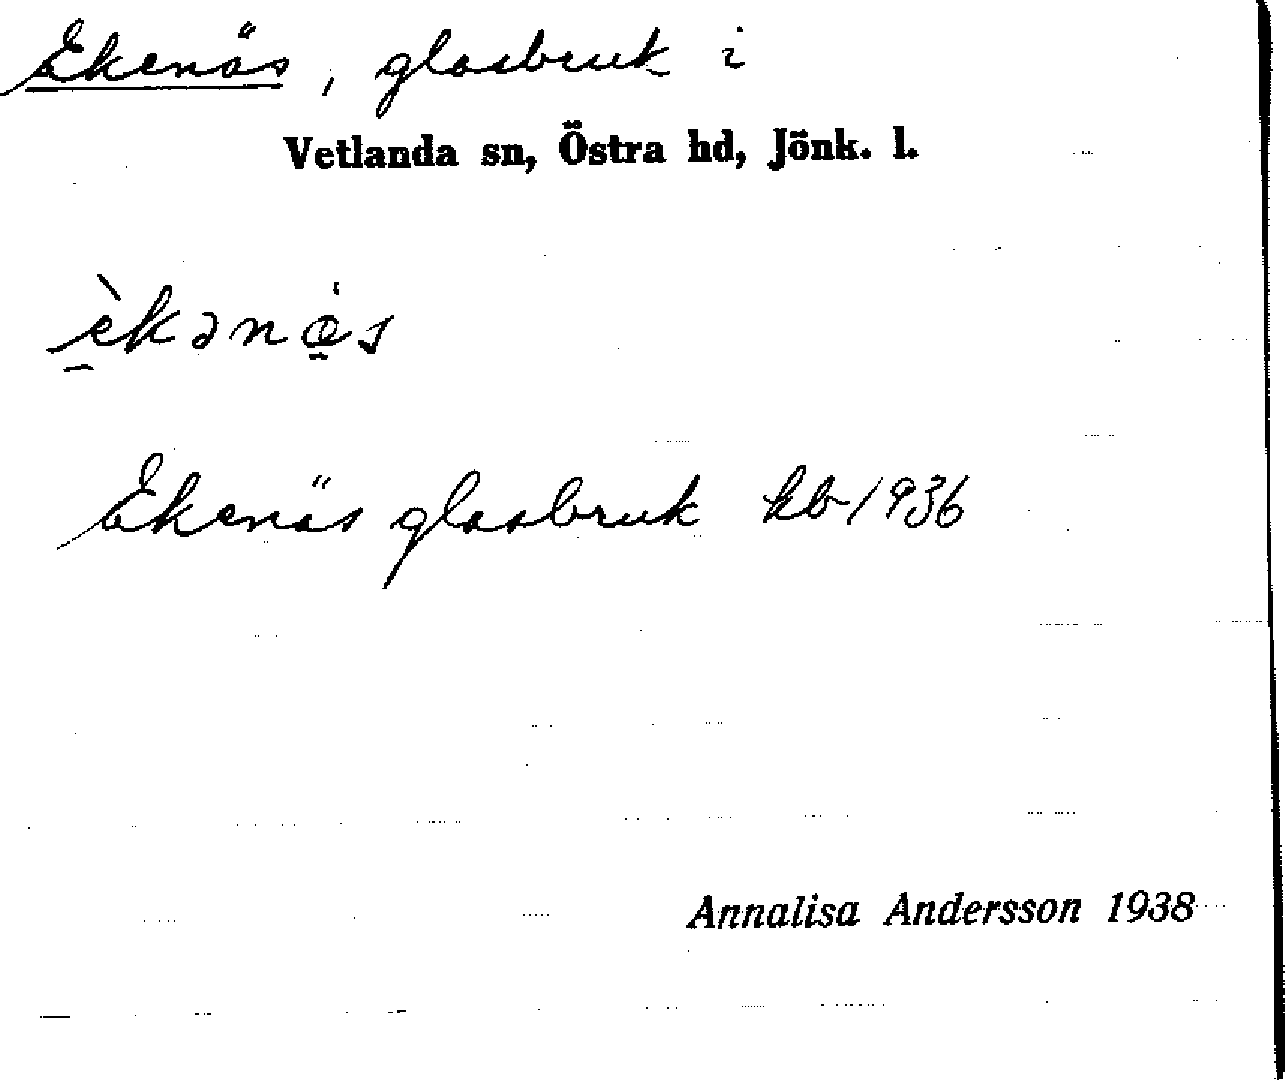 Ekenäs, glasbruk i
Vetlanda sn, Östra hd, Jönk. l.
è̱kənǽ̱s
Ekenäs glasbruk kb 1936
Annalisa Andersson 1938